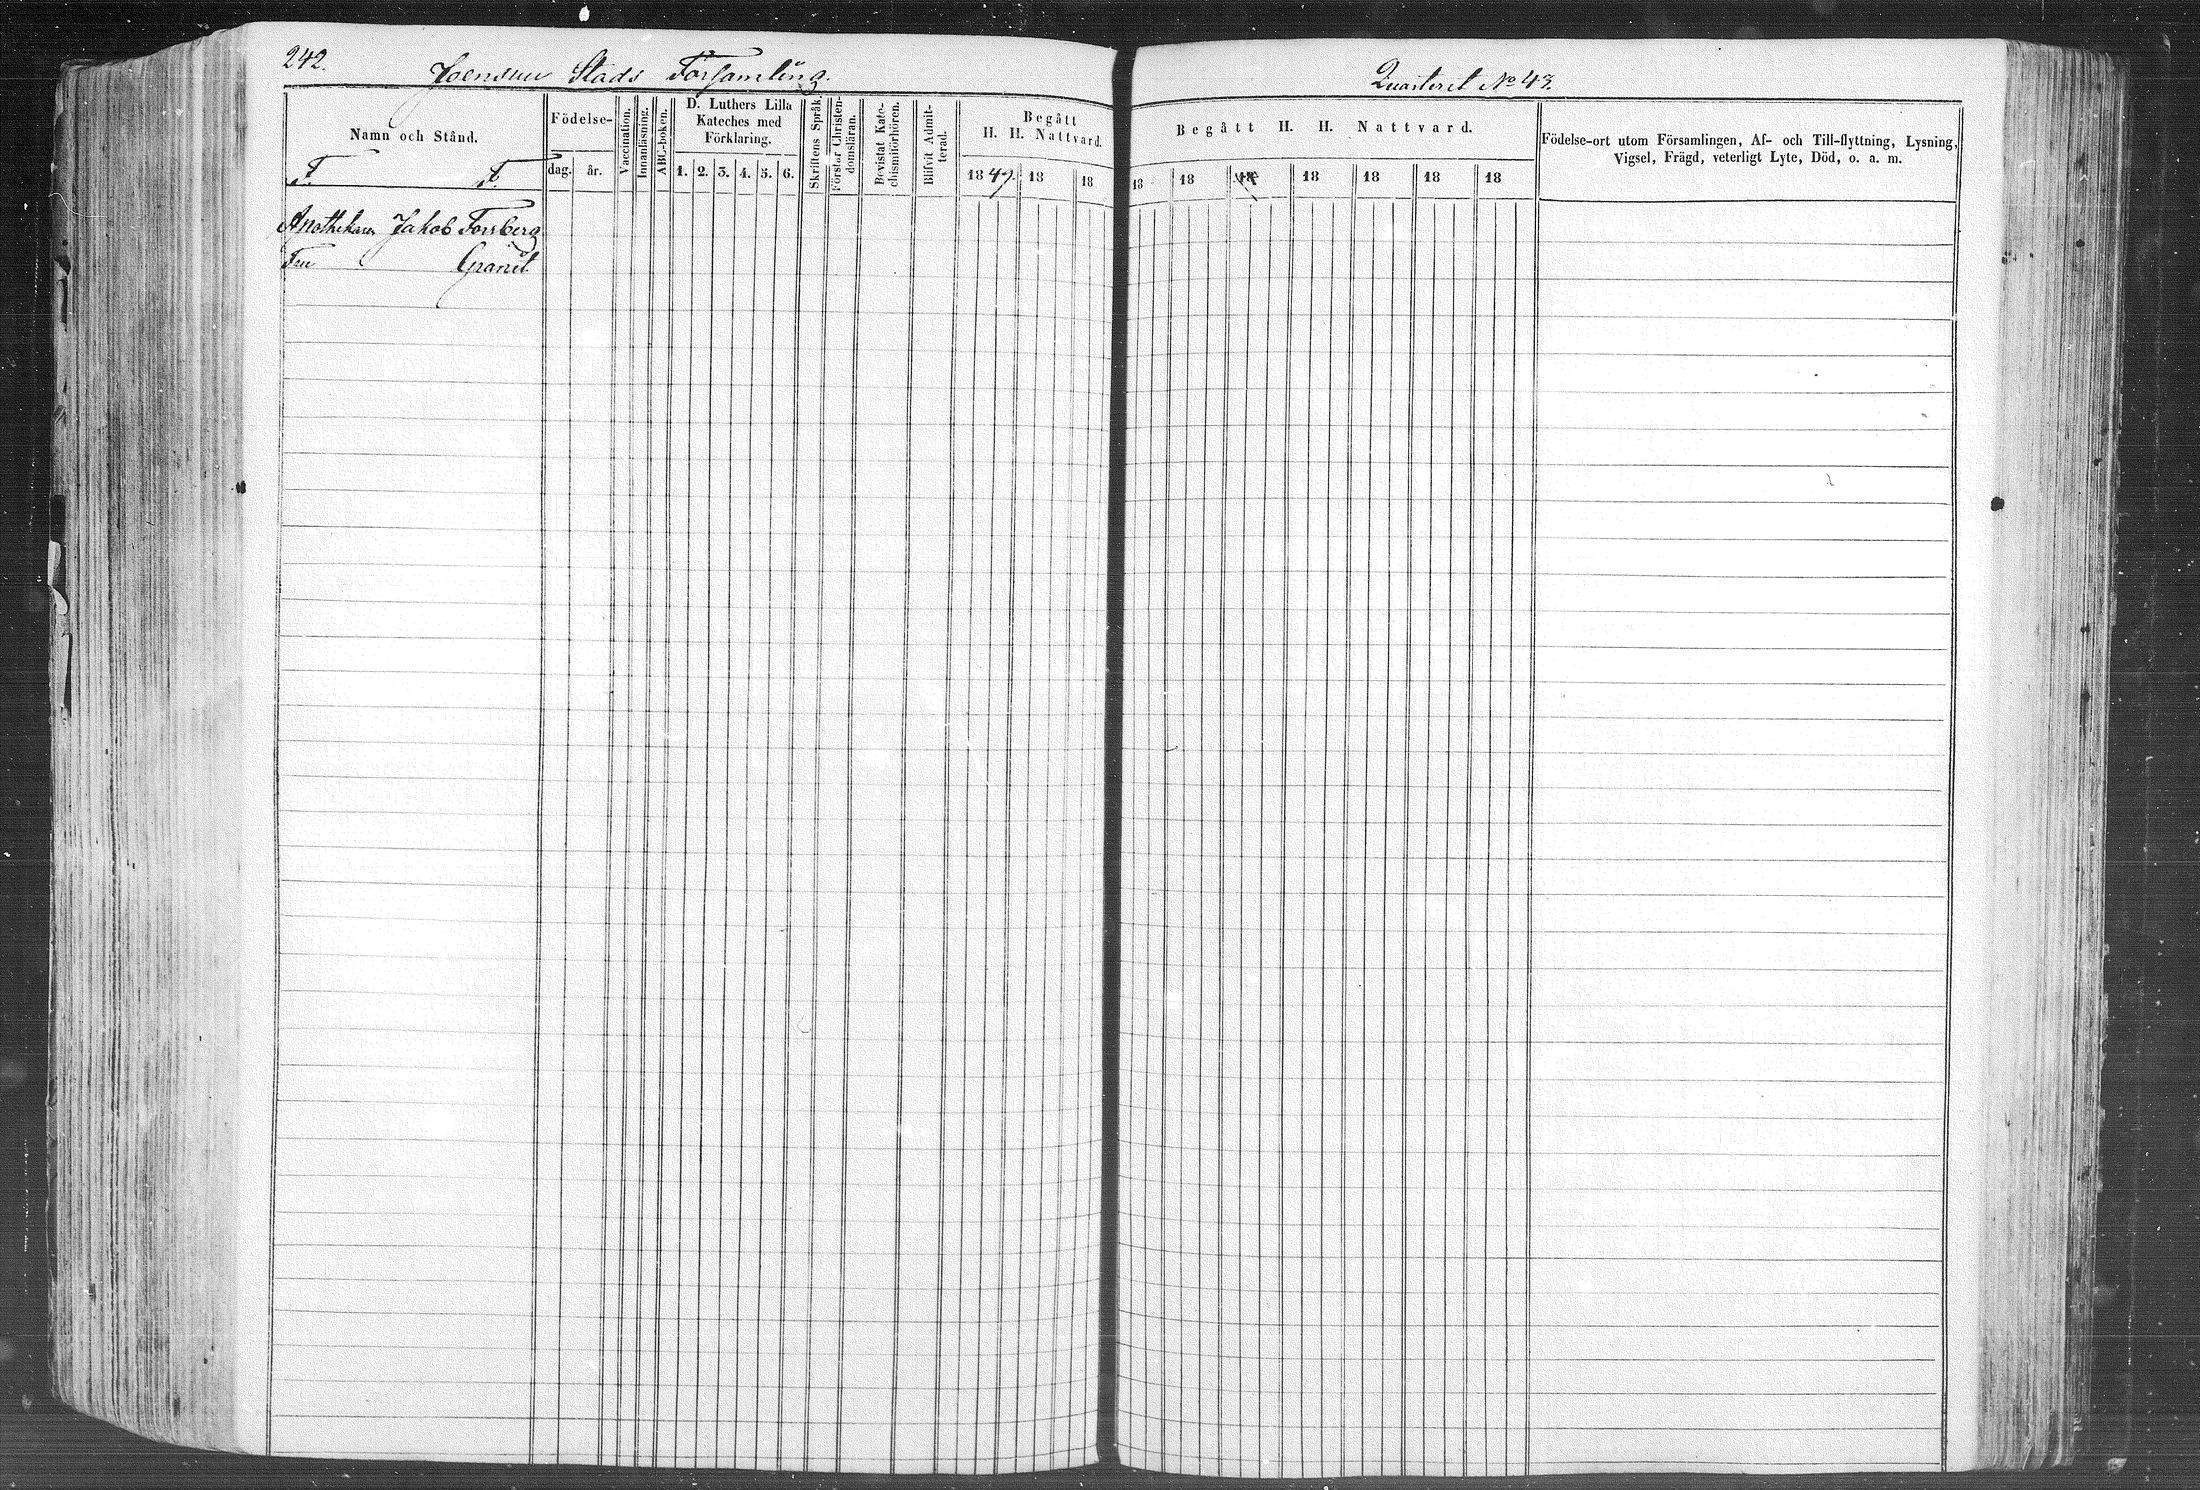 242.
Joensuu Stads Församling.
Quarteret No 43.
Namn och Stånd.
F. F.
Födelse-
dag. år.
Vaccination.
Innanläsning.
ABC-boken.
D. Luthers Lilla
Kateches med
Förklaring.
1. 2. 3. 4. 5. 6.
Skriftens Språk.
Förstår Christen-
domsläran.
Bevistat Kate-
chismiförhören.
Blifvit Admit-
terad.
Begått
H. H. Nattvard.
1849. 18 18
Begått H. H. Nattvard.
18 18 18 18 18 18 18
Födelse-ort utom Församlingen, Af- och Till-flyttning, Lysning,
Vigsel, Frägd, veterligt Lyte, Död, o. a. m.
Jakob Forsberg
Granit